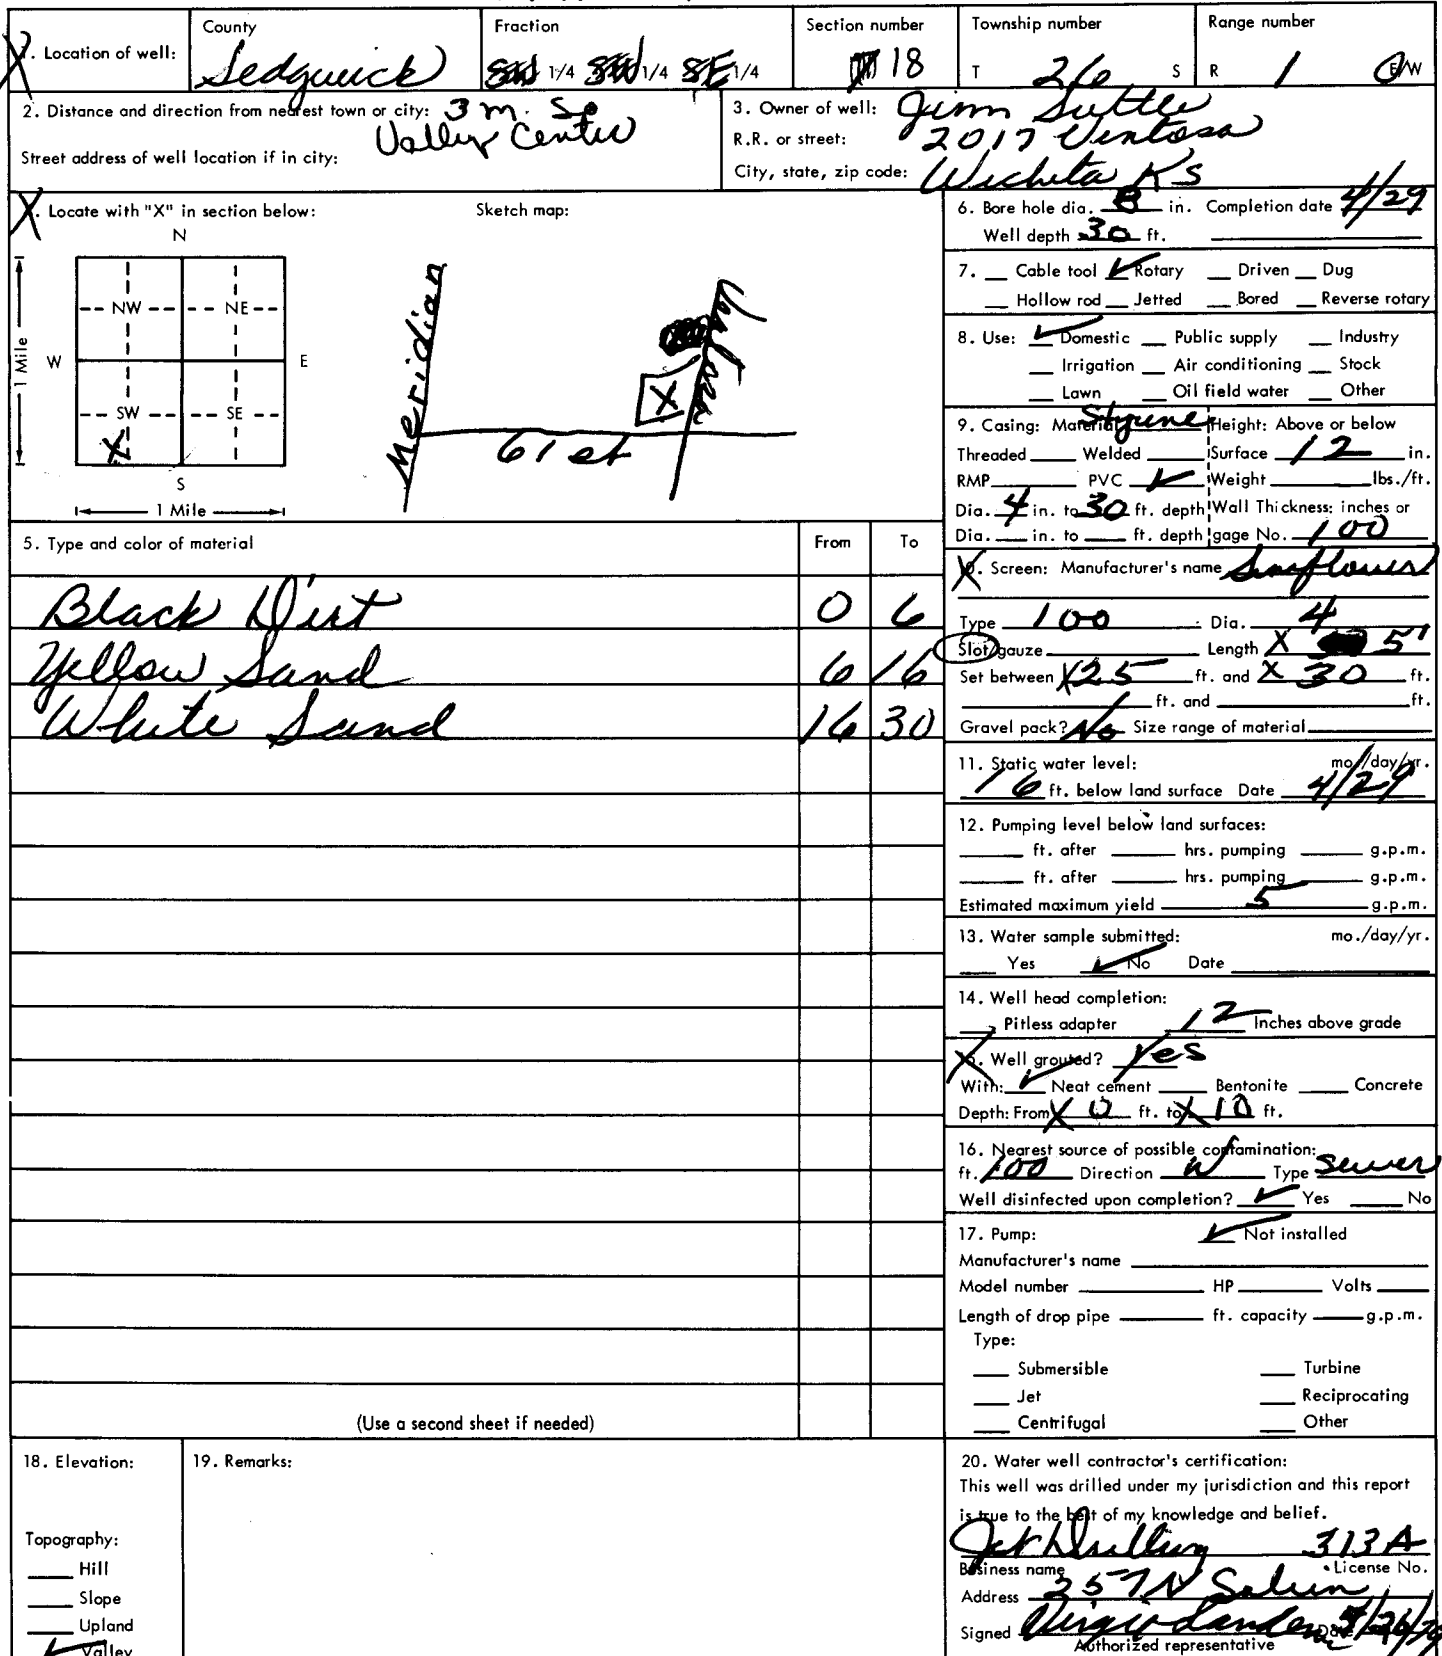 County
Fraction
Section number
Township number
Range number
1. Location of well:
Sedgwick
1/4 1/4 SE 1/4
18
T 26 S
R 1 E/W
2. Distance and direction from nearest town or city: 3 m. So
Valley Center
Street address of well location if in city:
3. Owner of well: Jim Suttle
R.R. or street: 2017 Ventosa
City, state, zip code: Wichita KS
4. Locate with "X" in section below:
Sketch map:
N
NW NE
W E
SW SE
X
S
1 Mile
1 Mile
Meridian
X
61 st
5. Type and color of material
From To
Black Dirt 0 6
Yellow Sand 6 16
White Sand 16 30
(Use a second sheet if needed)
6. Bore hole dia. 8 in. Completion date 4/29
Well depth 30 ft.
7. Cable tool ✓ Rotary Driven Dug
Hollow rod Jetted Bored Reverse rotary
8. Use: ✓ Domestic Public supply Industry
Irrigation Air conditioning Stock
Lawn Oil field water Other
9. Casing: Material Styrene Height: Above or below
Threaded Welded Surface 12 in.
RMP PVC ✓ Weight lbs./ft.
Dia. 4 in. to 30 ft. depth Wall Thickness: inches or
Dia. in. to ft. depth gage No. 100
10. Screen: Manufacturer's name Sunflower
Type 100 Dia. 4
Slot/gauze Length X 5'
Set between X 25 ft. and X 30 ft.
ft. and ft.
Gravel pack? No Size range of material
11. Static water level: mo./day/yr.
16 ft. below land surface Date 4/29
12. Pumping level below land surfaces:
ft. after hrs. pumping g.p.m.
ft. after hrs. pumping g.p.m.
Estimated maximum yield 5 g.p.m.
13. Water sample submitted: mo./day/yr.
Yes ✓ No Date
14. Well head completion:
Pitless adapter 12 Inches above grade
15. Well grouted? Yes
With: ✓ Neat cement Bentonite Concrete
Depth: From X 0 ft. to X 10 ft.
16. Nearest source of possible contamination:
ft. 100 Direction W Type Sewer
Well disinfected upon completion? ✓ Yes No
17. Pump: ✓ Not installed
Manufacturer's name
Model number HP Volts
Length of drop pipe ft. capacity g.p.m.
Type:
Submersible Turbine
Jet Reciprocating
Centrifugal Other
18. Elevation:
Topography:
Hill
Slope
Upland
✓ Valley
19. Remarks:
20. Water well contractor's certification:
This well was drilled under my jurisdiction and this report
is true to the best of my knowledge and belief.
Jet Drilling 313A
Business name License No.
Address 257 N
Signed Date
Authorized representative